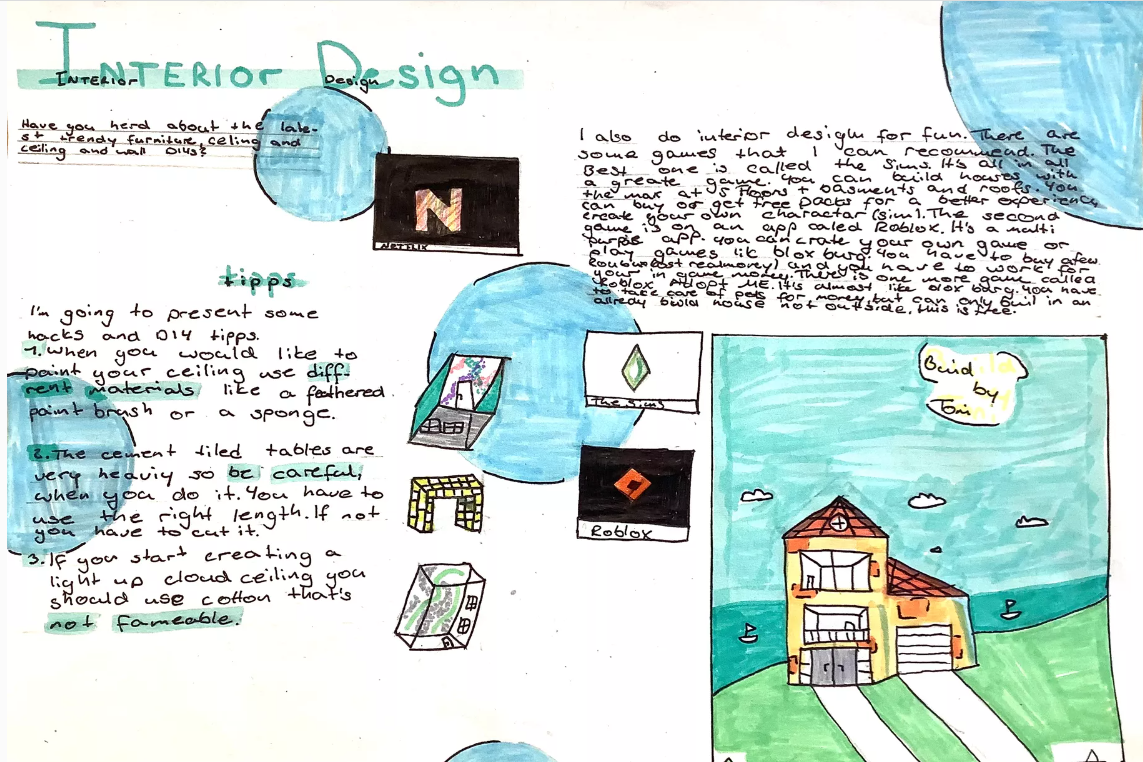 INTERIOR Design
INTERIOR Design
Have you herd about the late-
st trendy furniture, celing and
ceiling and wall D14s?
NETFLIX
tipps
I'm going to present some
hacks and D14 tipps.
1. When you would like to
paint your ceiling use diff-
rent materials like a feathered
paint brush or a sponge.
2. The cement tiled tables are
very heaviy so be careful,
when you do it. You have to
use the right length. If not
you have to cut it.
3. If you start creating a
light up cloud ceiling you
should use cotton that's
not fameable.
I also do interior design for fun. There are
some games that I can recommend. The
Best one is called the Sims. It's all in all
a greate game. You can build houses with
the max at 5 floors + basments and roofs. You
can buy or get free packs for a better experience
create your own charactar (sim). The second
game is on an app called Roblox. It's a multi
purps app. you can crate your own game or
play games lik blox burg. You have to buy a few
(cost real money) and you have to work for
your in game money. There is one more game called
Roblox Adopt ME. It is almost like blox burg. You have
to take care of pets for money but can only buil in an
allredy build house not outside, this is free.
The Sims
Roblox
Build
by